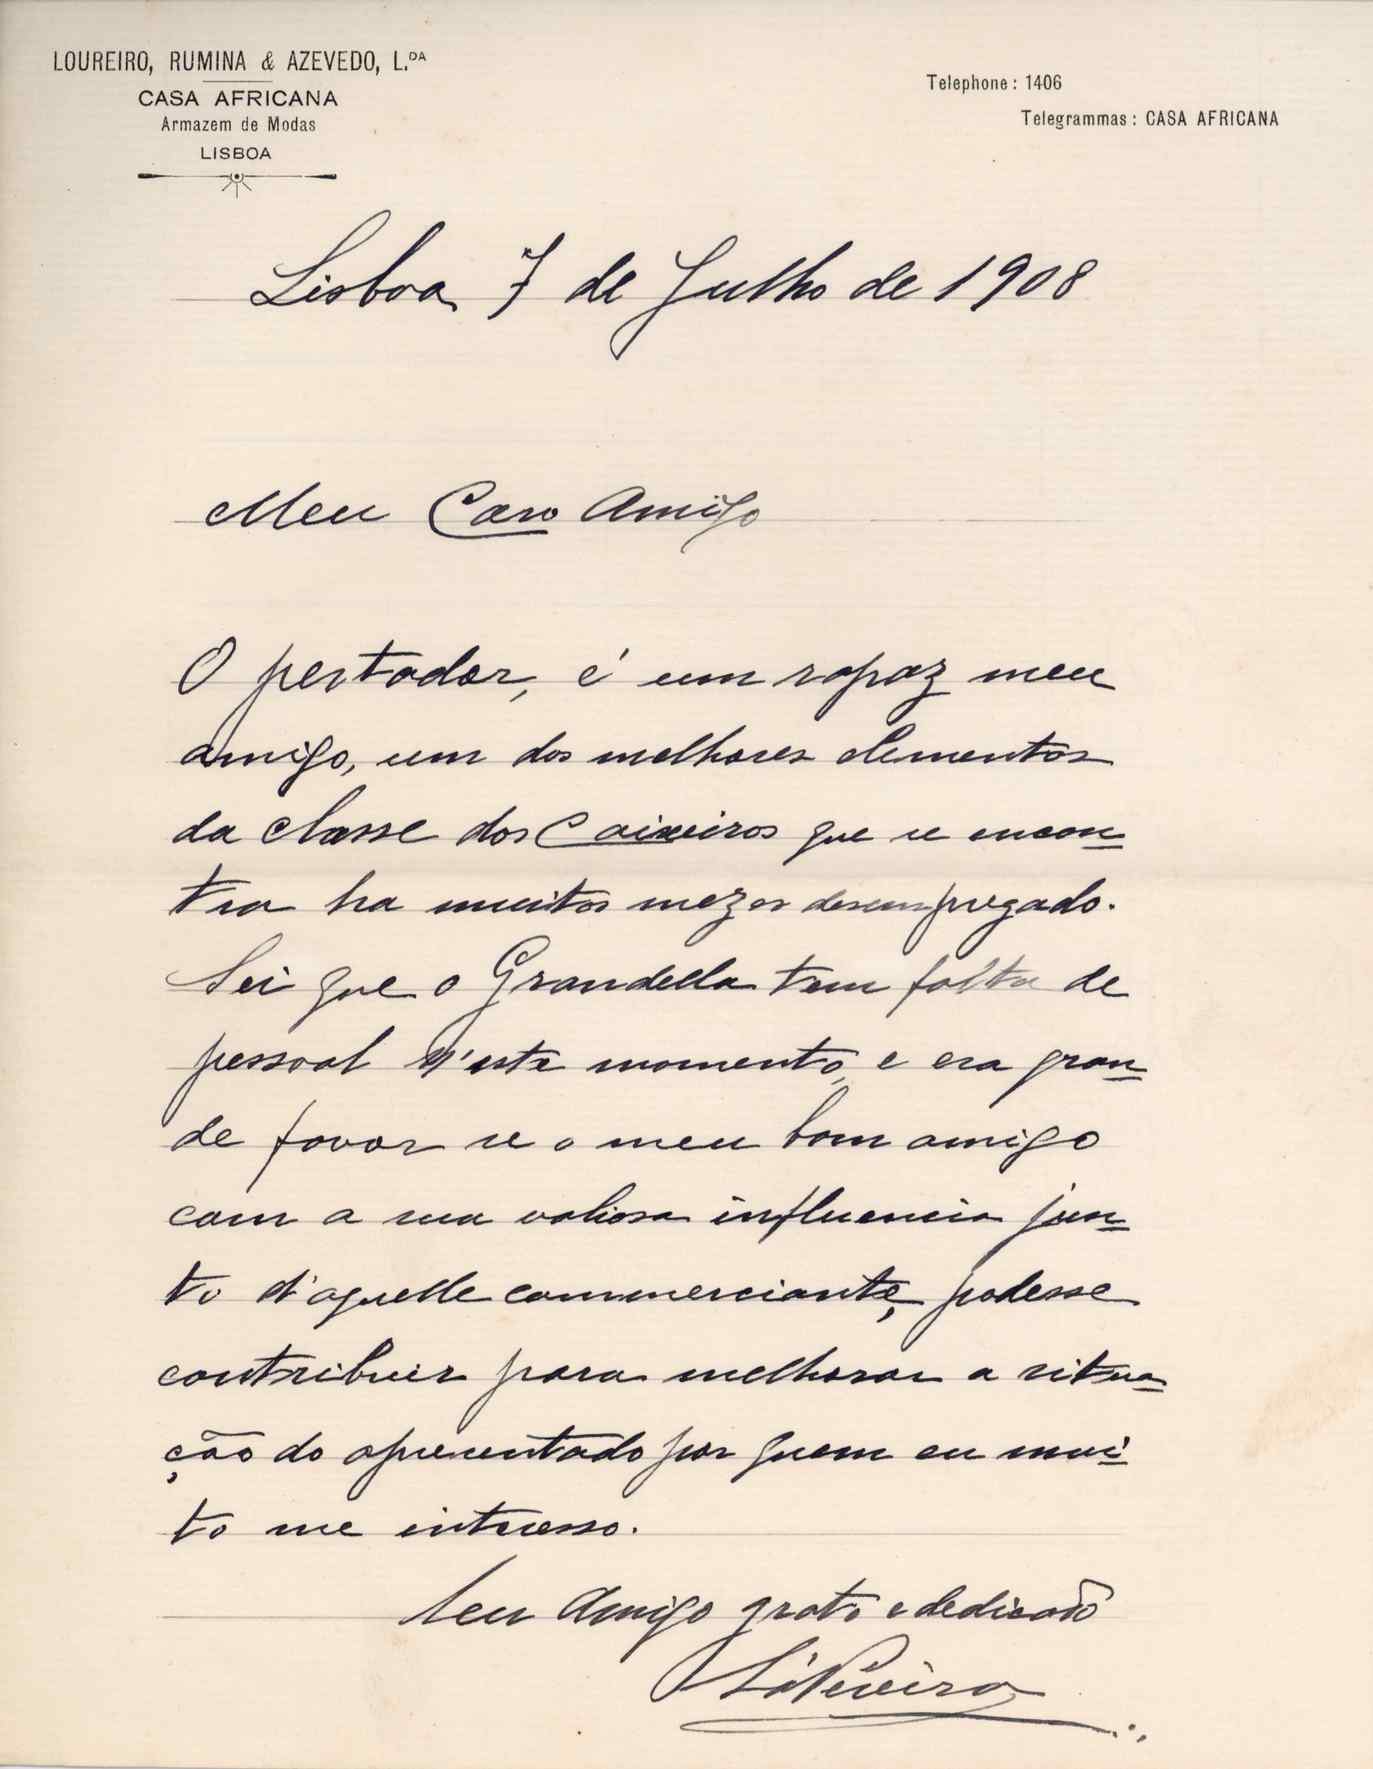 LOUREIRO, RUMINA & AZEVEDO, L.DA
CASA AFRICANA
Armazem de Modas
LISBOA
Telephone: 1406
Telegrammas: CASA AFRICANA
Lisboa 7 de Julho de 1908
Meu Caro Amigo
O portador, é um rapaz meu
amigo, um dos melhores elementos
da classe dos Caixeiros que se encon=
tra ha muitos mezes desempregado.
Sei que o Grandella tem falta de
pessoal n'este momento, e era gran=
de favor se o meu bom amigo
com a sua valiosa influencia jun=
to d'aquelle commerciante, podesse
contribuir para melhorar a situa=
ção do apresentado por quem eu mui=
to me interesso.
Seu Amigo grato e dedicado